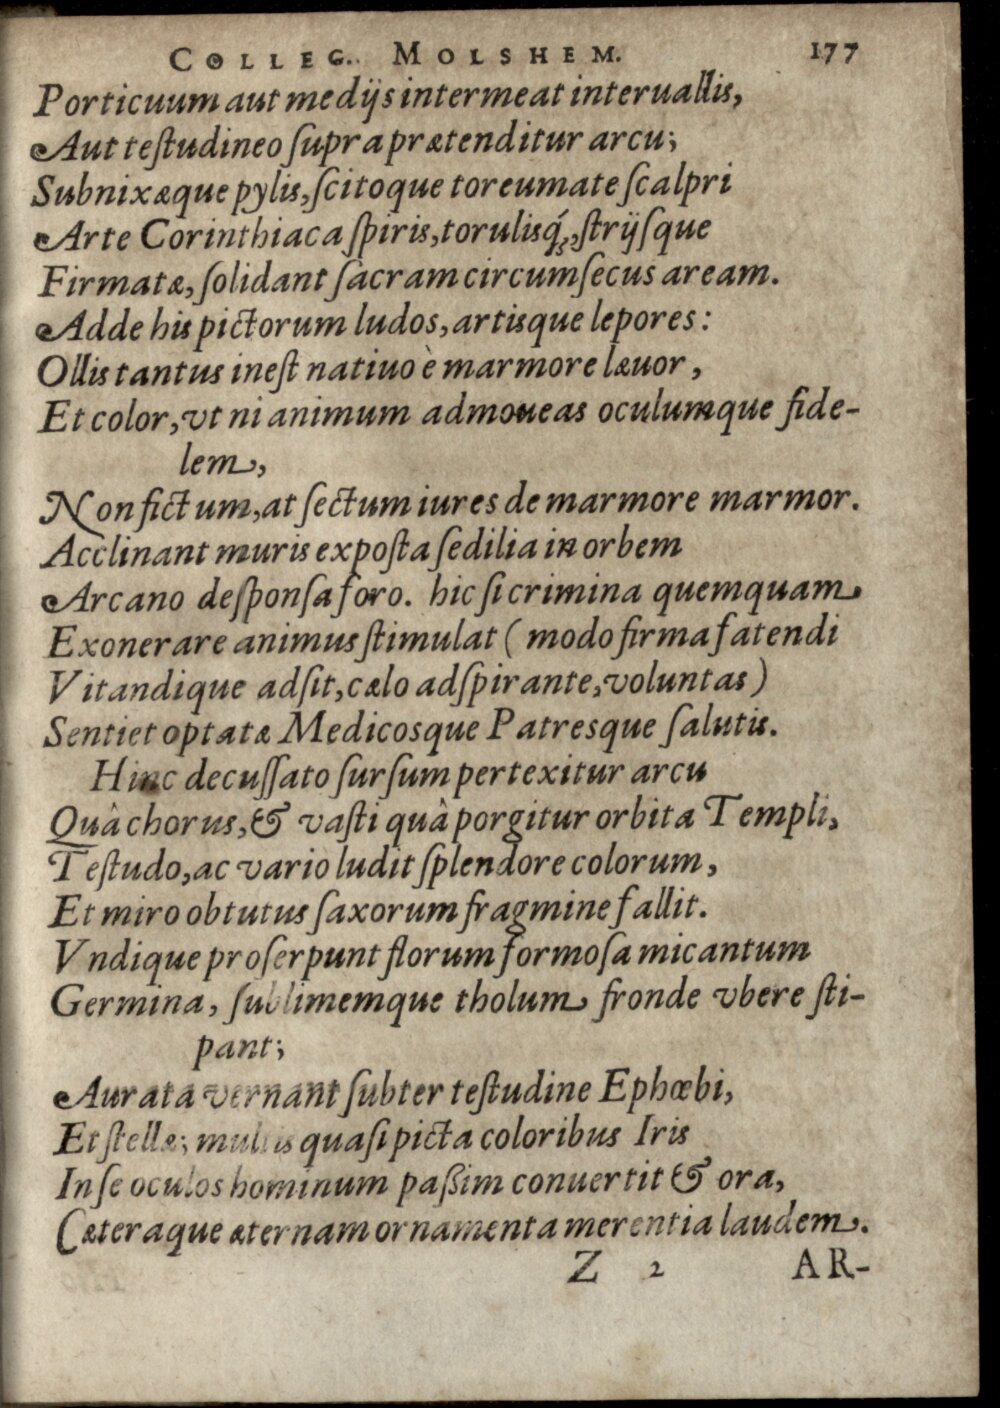 COLLEG. MOLSHEM. 177
Porticuum aut medijs intermeat interuallis,
Aut teſtudineo ſupra prætenditur arcu;
Subnixæque pylis, ſcitoque toreumate ſcalpri
Arte Corinthiaca ſpiris, torulisq́;, ſtrijſque
Firmatæ, ſolidant ſacram circumſecus aream.
Adde his pictorum ludos, artisque lepores:
Ollis tantus ineſt natiuo è marmore læuor,
Et color, vt ni animum admoueas oculumque fide-
lem,
Non fictum, at ſectum iures de marmore marmor.
Acclinant muris expoſta ſedilia in orbem
Arcano deſponſa foro. hic ſi crimina quemquam
Exonerare animus ſtimulat (modo firma fatendi
Vitandique adſit, cælo adſpirante, voluntas)
Sentiet optatæ Medicosque Patresque ſalutis.
Hinc decuſſato ſurſum pertexitur arcu
Quâ chorus, & vaſti quâ porgitur orbita Templi,
Teſtudo, ac vario ludit ſplendore colorum,
Et miro obtutus ſaxorum fragmine fallit.
Vndique proſerpunt florum formoſa micantum
Germina, ſublimemque tholum fronde vbere ſti-
pant;
Aurata vernant ſubter teſtudine Ephœbi,
Et ſtellæ; multis quaſi picta coloribus Iris
In ſe oculos hominum paßim conuertit & ora,
Cæteraque æternam ornamenta merentia laudem.
Z 2 AR-